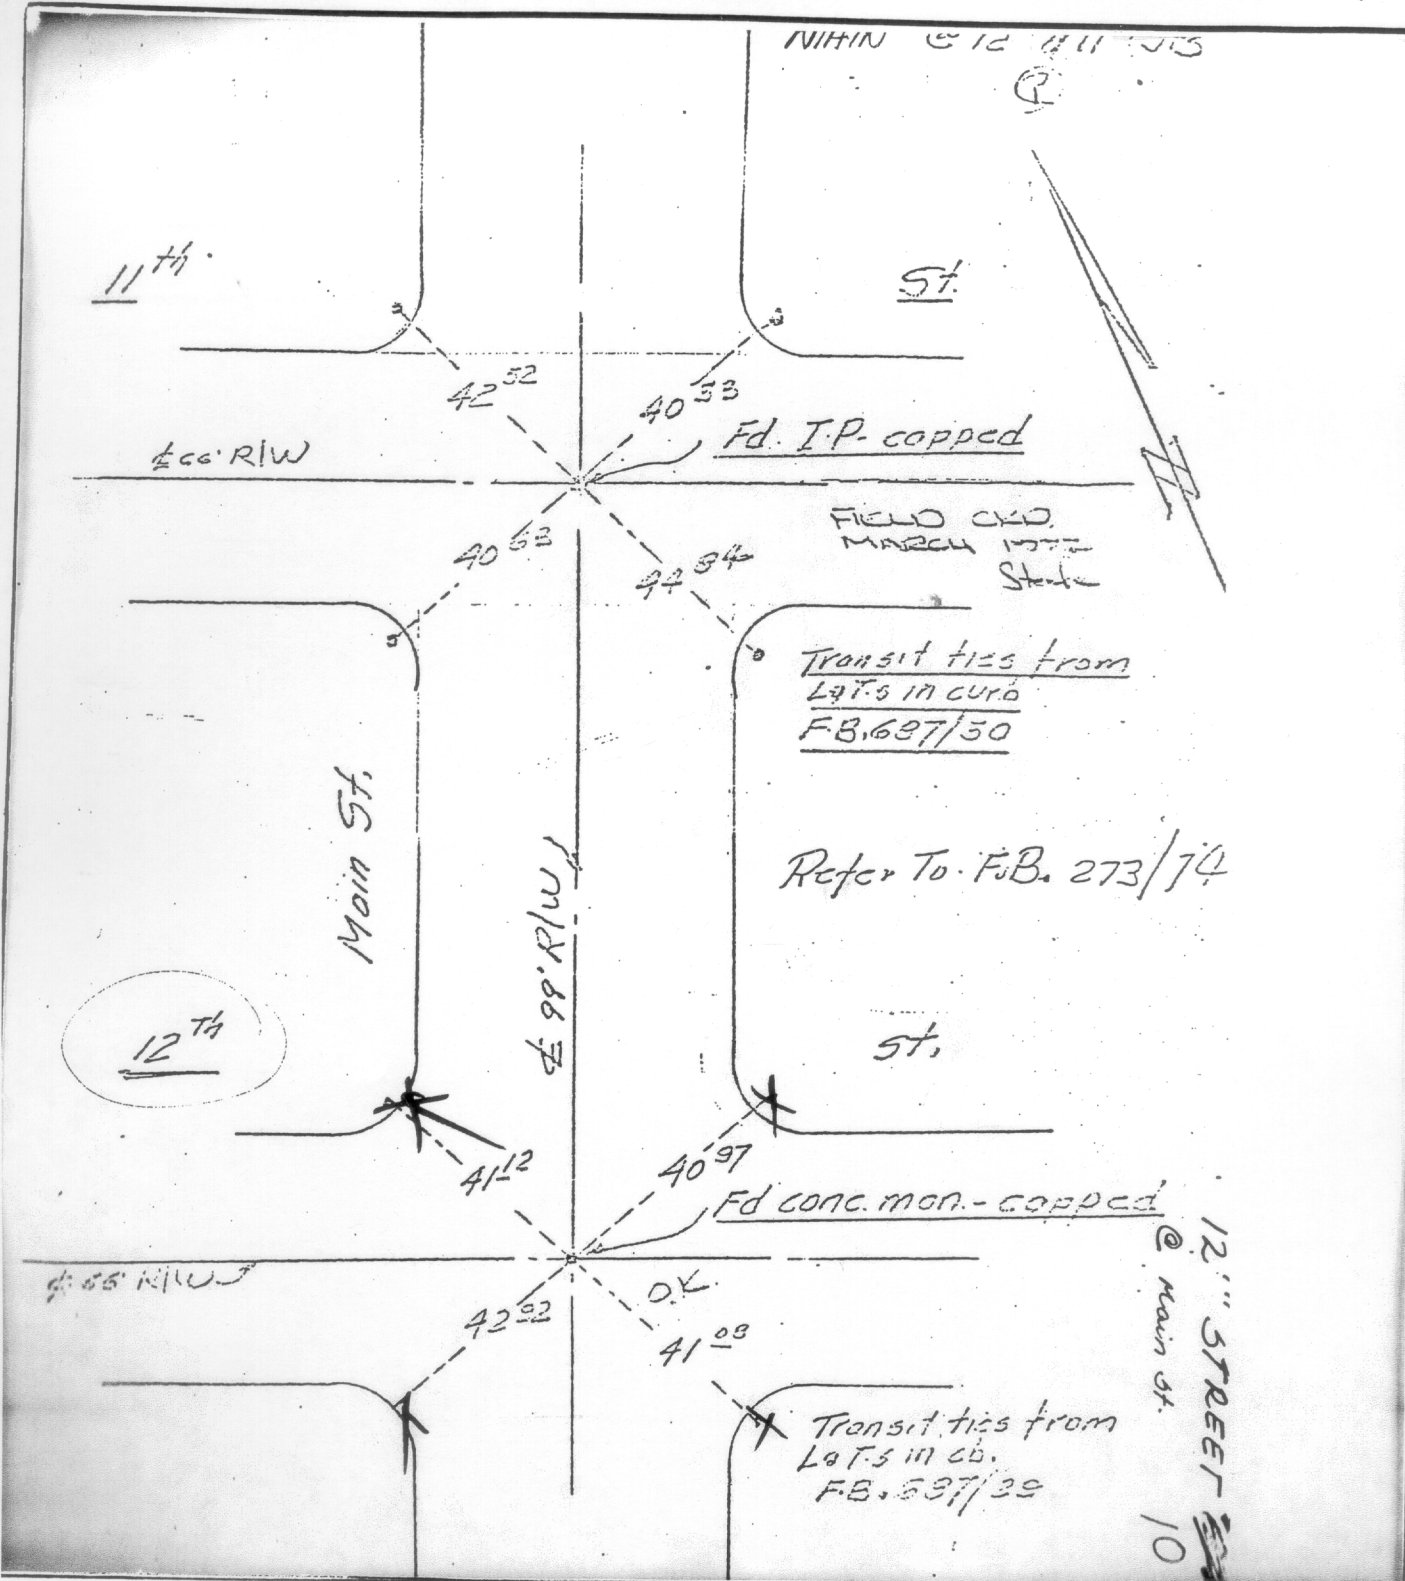 @ 12
11 th
St.
42 52
40 53
Fd. I.P. - capped
₵ 66' R/W
FIELD CKD.
MARCH
40 63
44 84
Transit ties from
L&T-s in curb
F.B. 687/30
Main St.
Refer To F.B. 273/74
₵ 99' R/W
12 Th
St.
41 12
40 97
Fd conc. mon. - capped
₵ 66' R/W
O.K.
42 92
41 08
Transit ties from
L&T-s in cb.
F.B. 687/29
12'" STREET
@ Main St.
10